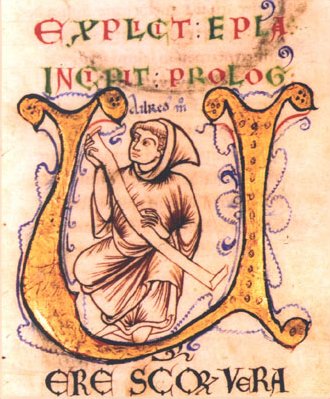 EXPLICIT : EPLA
INCIPIT : PROLOG
Ailred m
U
ERE SCOꝜ VERA